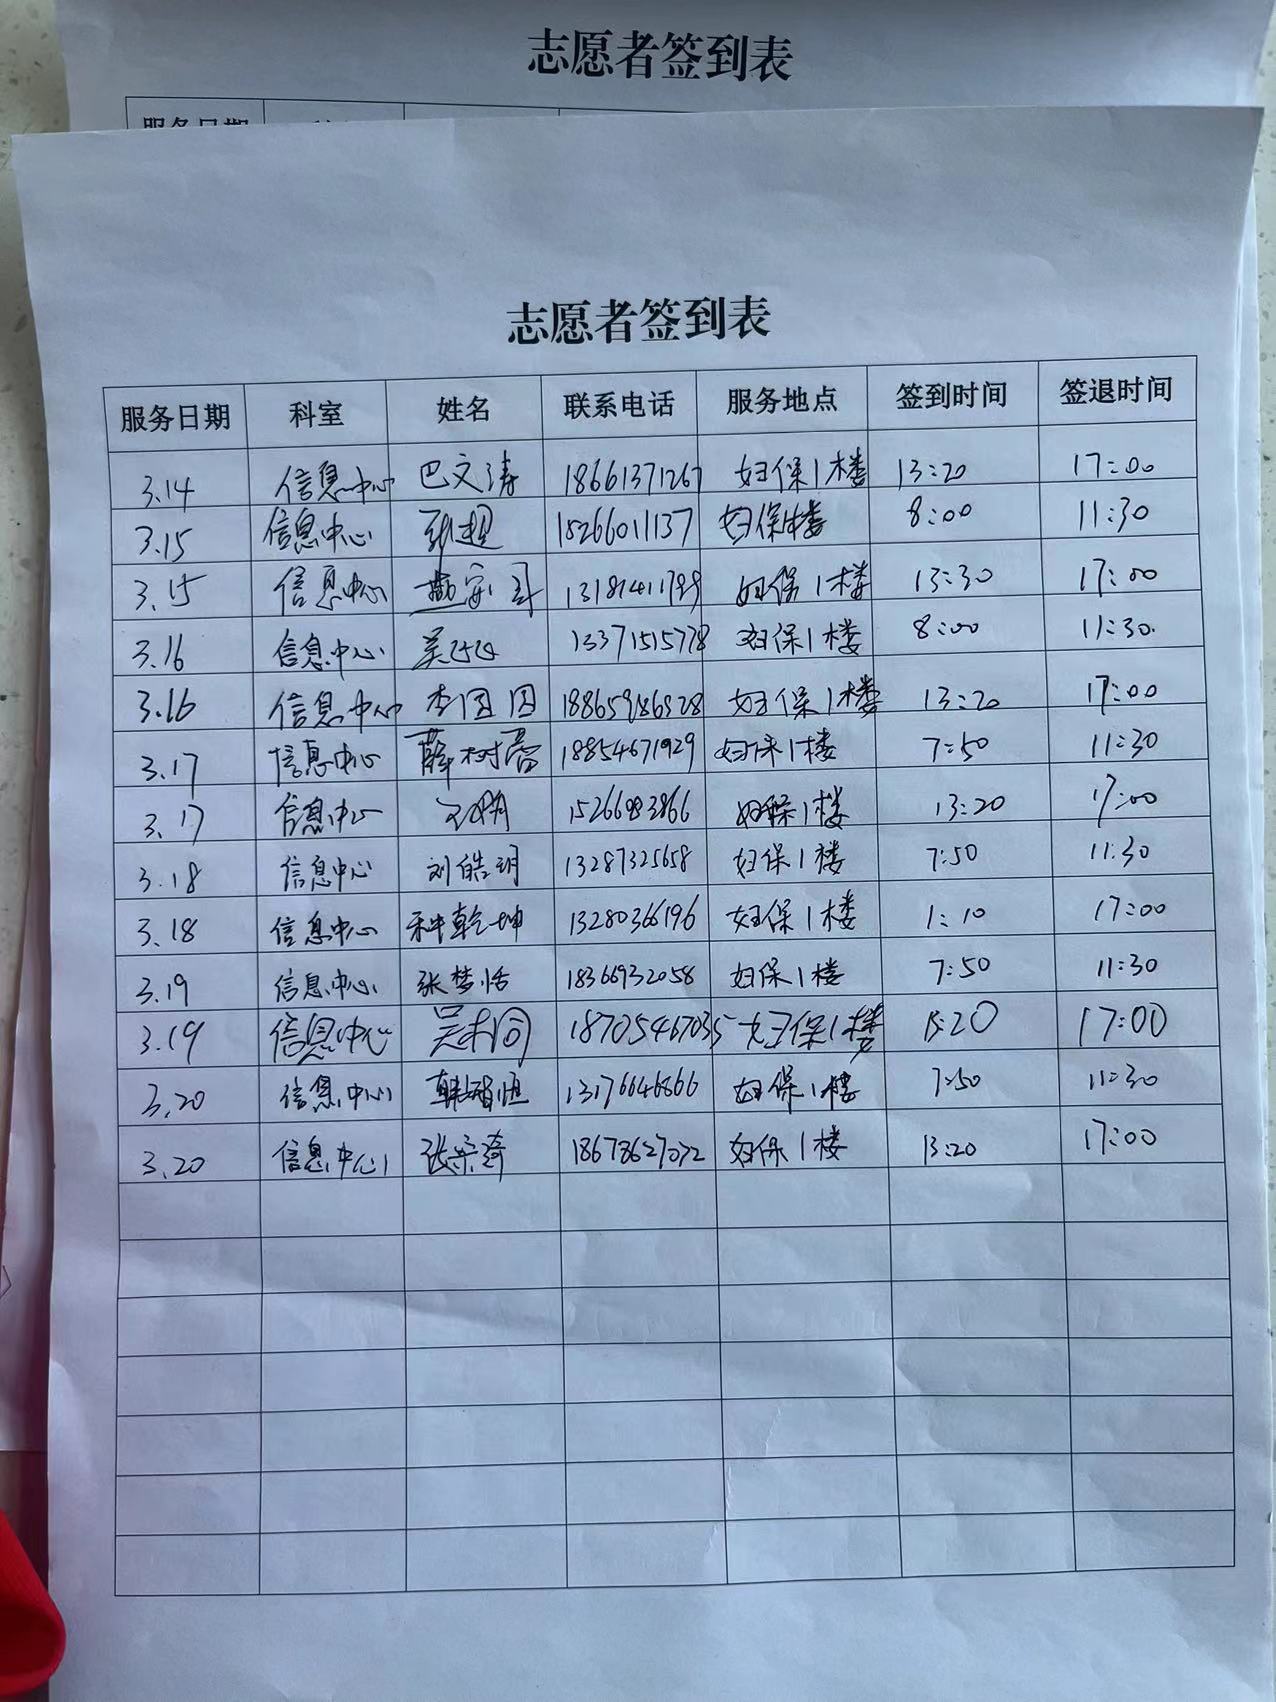 志愿者签到表
服务日期
志愿者签到表
服务日期 科室 姓名 联系电话 服务地点 签到时间 签退时间
3.14 信息中心 巴文涛 18661371267 妇保1楼 13:20 17:00
3.15 信息中心 张超 15266011137 妇保1楼 8:00 11:30
3.15 信息中心 妇保1楼 13:30 17:00
3.16 信息中心 13371515778 妇保1楼 8:00 11:30
3.16 信息中心 李囡囡 妇保1楼 13:20 17:00
3.17 信息中心 18854671929 妇保1楼 7:50 11:30
3.17 信息中心 妇保1楼 13:20 17:00
3.18 信息中心 刘皓玥 13287325658 妇保1楼 7:50 11:30
3.18 信息中心 13280366196 妇保1楼 1:10 17:00
3.19 信息中心 张梦恬 18366932058 妇保1楼 7:50 11:30
3.19 信息中心 18705467035 妇保1楼 13:20 17:00
3.20 信息中心 韩智恒 13176646866 妇保1楼 7:50 11:30
3.20 信息中心 18678627072 妇保1楼 13:20 17:00